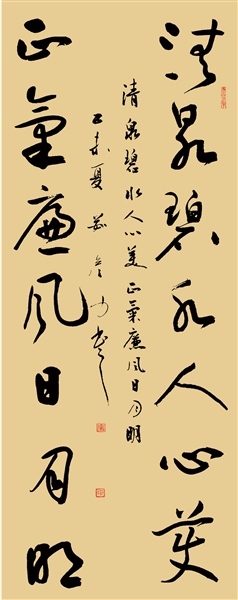 清泉碧水人心美
清泉碧水人心美正氣廉風日月明
乙未夏 書
正氣廉風日月明